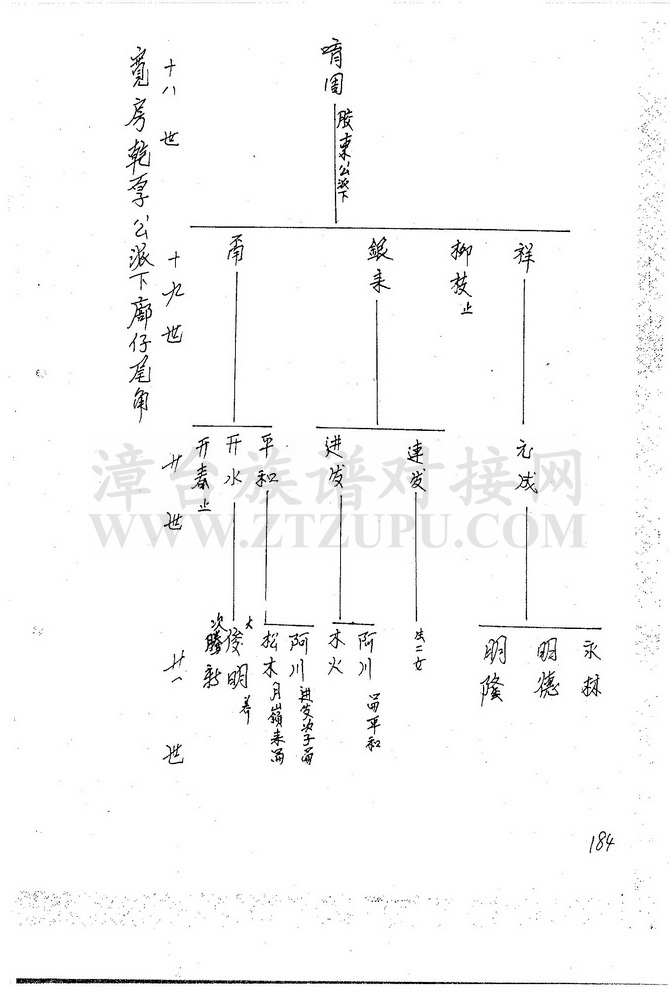 十八世
啃周
股東公派下
寬房乾厚公派下廊仔尾角
十九世
祥
柳枝止
銀来
甬
廿世
元成
連发
进发
平和
开水
开春止
漳台族谱对接网
WWW.ZTZUPU.COM
廿一世
永林
明德
明隆
生二女
阿川
木火
阿川
进发次子
松木
月嶺来
大
俊明
养
次
腾新
184